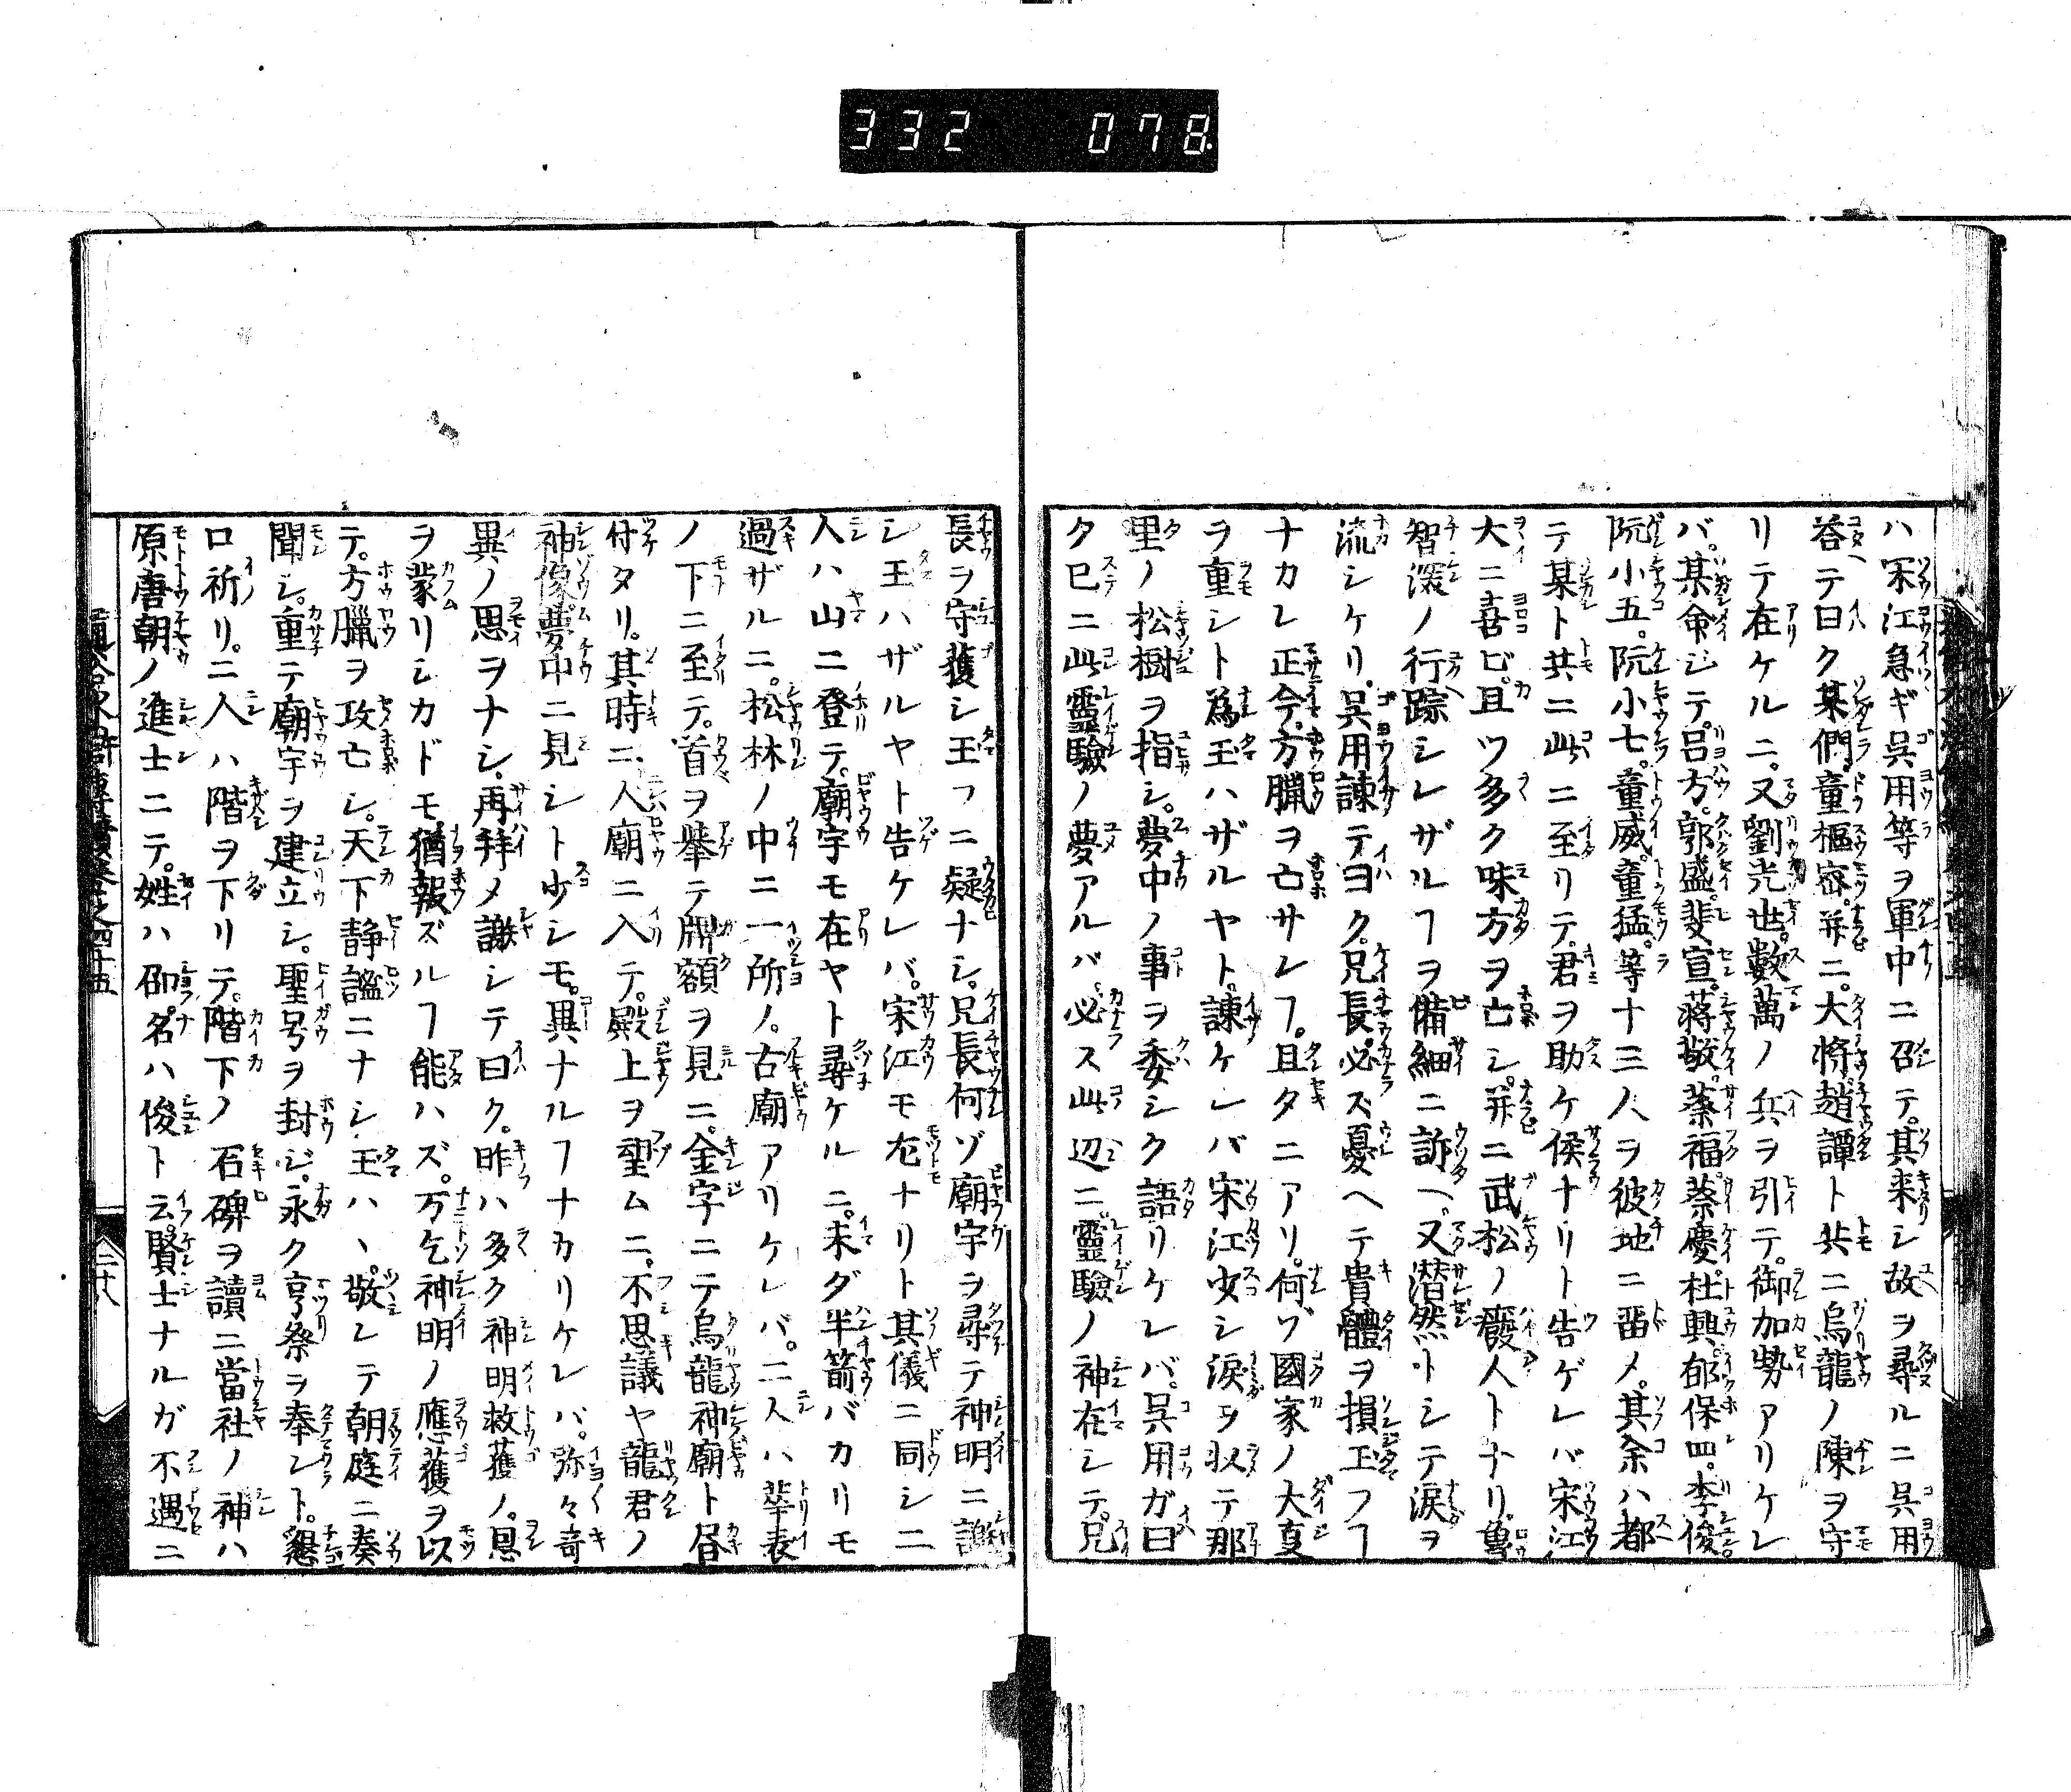 332 078
ハ宋江急ギ呉用等ヲ軍中ニ召テ。其来シ故ヲ尋ルニ呉用
答テ曰ク某們。童樞密。并ニ。大將趙譚ト共ニ烏龍ノ陳ヲ守
リテ在ケルニ。又劉光世。數萬ノ兵ヲ引テ。御加勢アリケレ
バ。某命ジテ。呂方。郭盛。裴宣。蒋敬。蔡福。蔡慶。杜興。郁保四。李俊
阮小五。阮小七。童威。童猛。等十三人ヲ彼地ニ畄メ。其余ハ都
テ某ト共ニ此ニ至リテ。君ヲ助ケ候ナリト告ゲレバ宋江
大ニ喜ビ。且ツ多ク味方ヲ亡シ。并ニ武松ノ癈人トナリ。魯
智深ノ行踪シレザルヿヲ備細ニ訴ヘ。又潜然トシテ涙ヲ
流シケリ。呉用諫テヨク。兄長。必ズ憂ヘテ貴體ヲ損玉フヿ
ナカレ正今。方臘ヲ亡サレヿ。且タニアリ。何ゾ國家ノ大夏
ヲ重シト為玉ハザルヤト。諫ケレバ宋江少シ涙ヲ収テ那
里ノ松樹ヲ指シ。夢中ノ事ヲ委シク語リケレバ。呉用ガ曰
ク已ニ此靈驗ノ夢アルバ。必ス此辺ニ靈驗ノ神在シテ。兄
長ヲ守護シ玉フニ疑ナシ。兄長何ゾ廟宇ヲ尋テ神明ニ謝
シ玉ハザルヤト告ケレバ。宋江モ尤ナリト其儀ニ同シ二
人ハ山ニ登テ。廟宇モ在ヤト尋ケルニ。未ダ半箭バカリモ
過ザルニ。松林ノ中ニ一所ノ。古廟アリケレバ。二人ハ華表
ノ下ニ至テ。首ヲ擧テ牌額ヲ見ニ。金字ニテ烏龍神廟ト昏
付タリ。其時二人廟ニ入テ。殿上ヲ望ムニ。不思議ヤ龍君ノ
神像夢中ニ見シト少シモ。異ナルヿナカリケレバ。弥々奇
異ノ思ヲナシ、再拜メ謝シテ曰ク。昨ハ多ク神明救護ノ。恩
ヲ蒙リシカドモ。猶報ズルヿ能ハズ。万乞神明ノ應護ヲ以
テ。方臘ヲ攻亡シ。天下静謐ニナシ玉ハヽ。敬レテ朝庭ニ奏
聞シ。重テ廟宇ヲ建立シ。聖号ヲ封ジ。永ク亨祭ヲ奉ント。懇
ロ祈リ。二人ハ階ヲ下リテ。階下ノ石碑ヲ讀ニ當社ノ神ハ
原唐朝ノ進士ニテ。姓ハ邵。名ハ俊ト云。賢士ナルガ不遇ニ
二十八